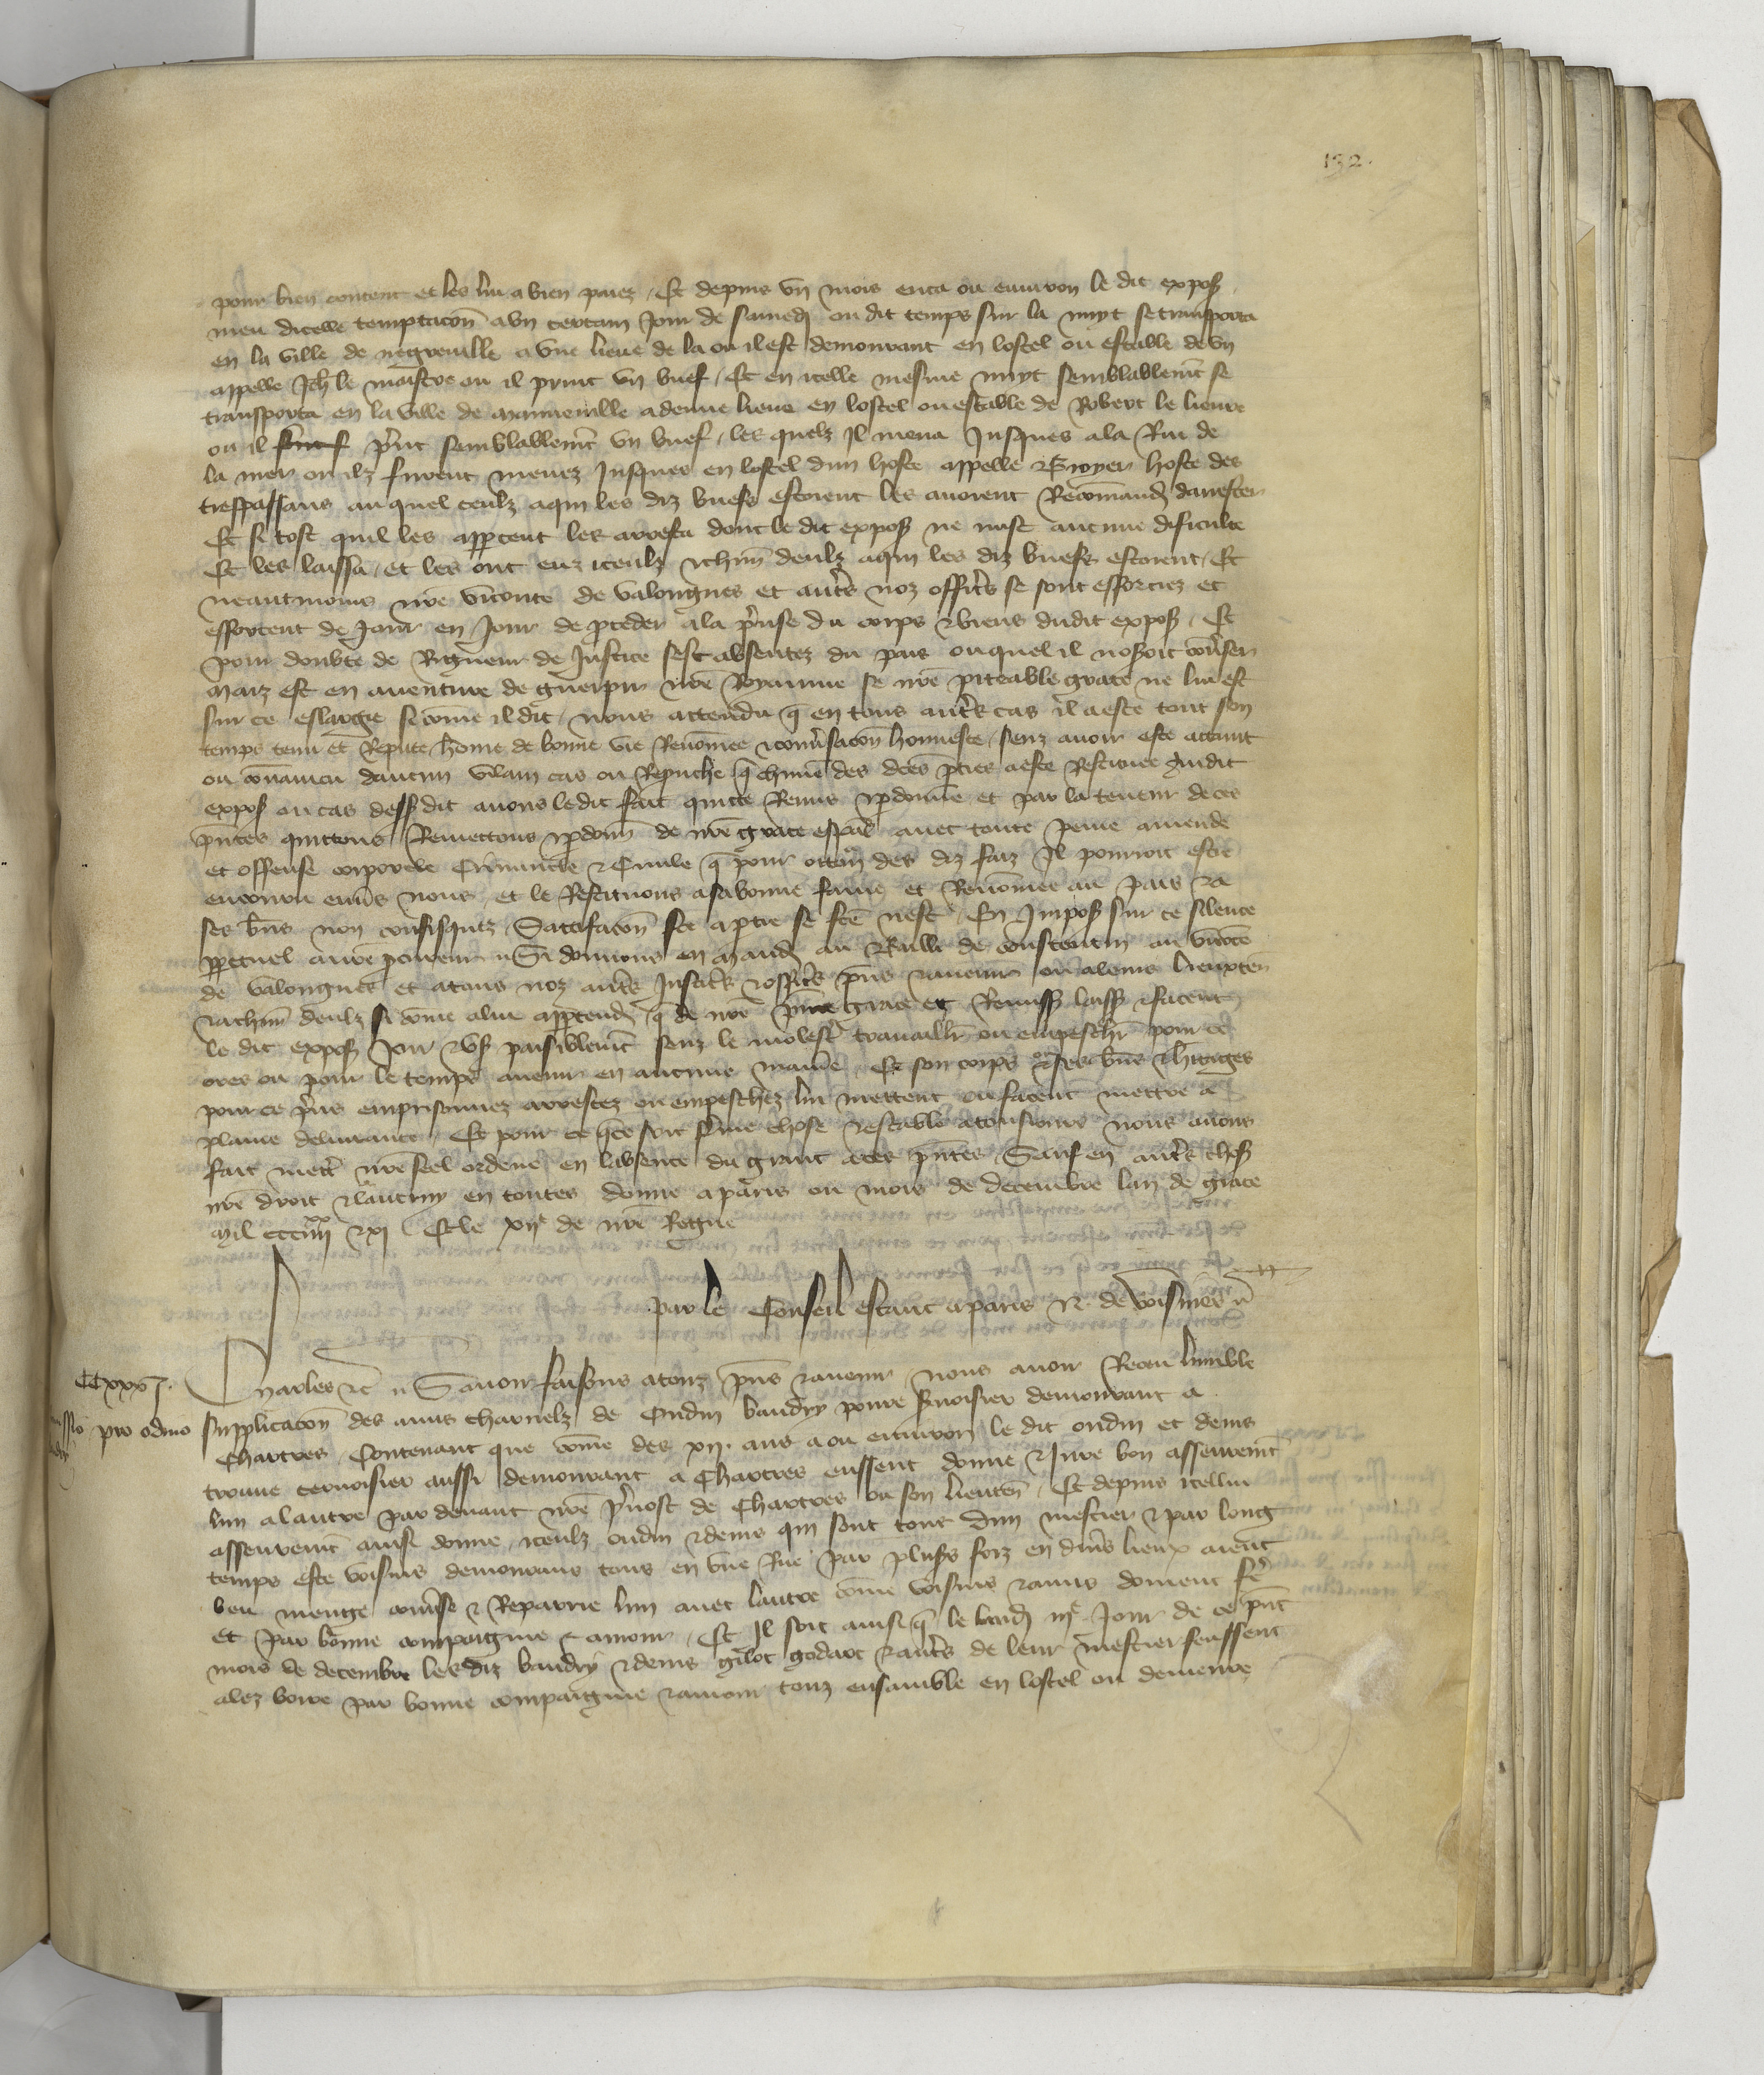 132.
pour bien content et les lui a bien paiez / Et depuis un mois enca ou environ le dit expos
meu dicelle temptacon a un certain jour de samedi ou dit temps sur la nuyt se transporta
en la ville de negreville a une lieue de la ou il est demourant en lostel ou estable de un
appelle Jeh le maistre ou il print un buef / Et en icelle mesme nuyt semblablemt se
transporta en la ville de a demie lieue en lostel ou estable de Robert le lieure
ou il print semblablemt un buef / les quelz il mena jusques a la Riu de
la mer ou ilz furent menez jusques en lostel dun hoste appelle Groyer hoste des
trespassans au quel ceulz a qui les diz buefs estoient les avoient Recomandez darester
Et si tost quil les appercut les arresta dont le dit expos ne mist aucune dificulte
Et les laissa / et les ont euz iceulz & chun deulz a qui les diz buefs estoient / Et
neantmoins nre viconte de valongnes et autrs noz officrs se sont efforciez et
efforcent de jour en jour de pceder a la prinse du corps & biens dudit expos / Et
pour doubte de Rigueur de justice sest absentez du pais ou quel il noseroit converser
Maiz est en aventure de guerpir nre Royaume se nre piteable grace ne lui est
sur ce eslargie si come il dit / nous attendu q en tous autrs cas il a este tout son
temps tenu et Repute home de bonne vie Renomee & conversacon honneste / senz avoir este attaint
ou convaincu daucun vilain cas ou Reprche q chune des dces pties a este Restituee Audit
expos ou cas dessus dit avons ledit fait quicte Remis & pdonne et par la teneur de ces
pntes quittons Remettons & pdonns de nre grace espal avec toute peine amende
et offense corporelle Criminelle & Civile q pour occon des diz faiz Il pourroit estre
encouru envs nous / et le Restituons a sa bonne fame et Renomee au pais & a
ses bns non confisquez / Satisfacon fce a ptie se fce nest / En Impos sur ce silence
ppetuel a nre pcureur Si donnons en mandt au Bailli de constentin au viconte
de valongnes et a tous noz autrs Justicrs & officrs pns & avenir ou a leurs lieuxten
& a chun deulz si come a lui apptendra q de nre pnte grace et Remiss laissent & facent
le dit expos joir & us paisiblemt senz le molestr travaillr ou empeschr pour ce
ores ou pour le temps avenir en aucune maniere / Et son corps & ses bns & hitages
pour ce prins emprisonnez arrestez ou empeschez lui mettent ou facent mettre a
plaine delivrance / Et pour ce q ce soit ferme chose & estable a tousiours nous avons
fait mettr nre seel ordene en labsence du grant a ces pntes / Sauf en autrs choses
nre droit & lautruy en toutes donne a paris ou mois de decembre lan de grace
Mil cccIIIIxx & xi Et le xiie de nre Regne
par le Conseil estant a paris N. de voisines
CCxxxi.
Charles &c Savoir faisons a touz pns & avenir / nous avoir Receu lumble
pro odino
supplicacon des amis charnelz de Oudin baudry povre demourant a
Chartres / Contenant que come des xii. ans a ou environ le dit oudin et denis
troune cervoisier aussi demourant a Chartres eussent donne & Jure bon asseuremt
lun a lautre par devant nre prevost de Chartres ou son lieuten / Et depuis icellui
asseuremt ainsi donne / iceulz oudin & denis qui sont tout dun mestier & par long
temps este voisins demourans tous en une Rue par plusrs foiz en divrs lieux aient
beu menge converse & Repairie lun avec lautre come voisins & amis doivent fe
et par bonne compaignie & amour / Et Il soit ainsi q le lundi iiie Jour de ce pnt
mois de decembre les diz baudry & denis gilot godart & autrs de leur mestier feussent
alez boire par bonne compaignie & amour touz ensamble en lostel ou demeure